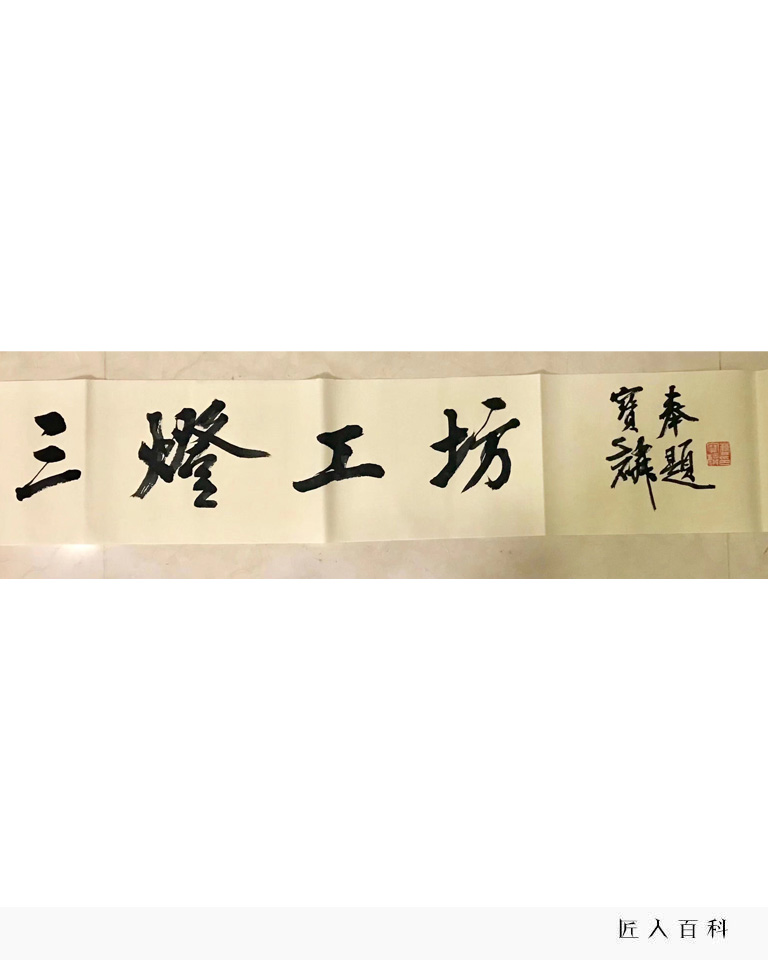 三燈工坊
奉題
寶麟
匠人百科